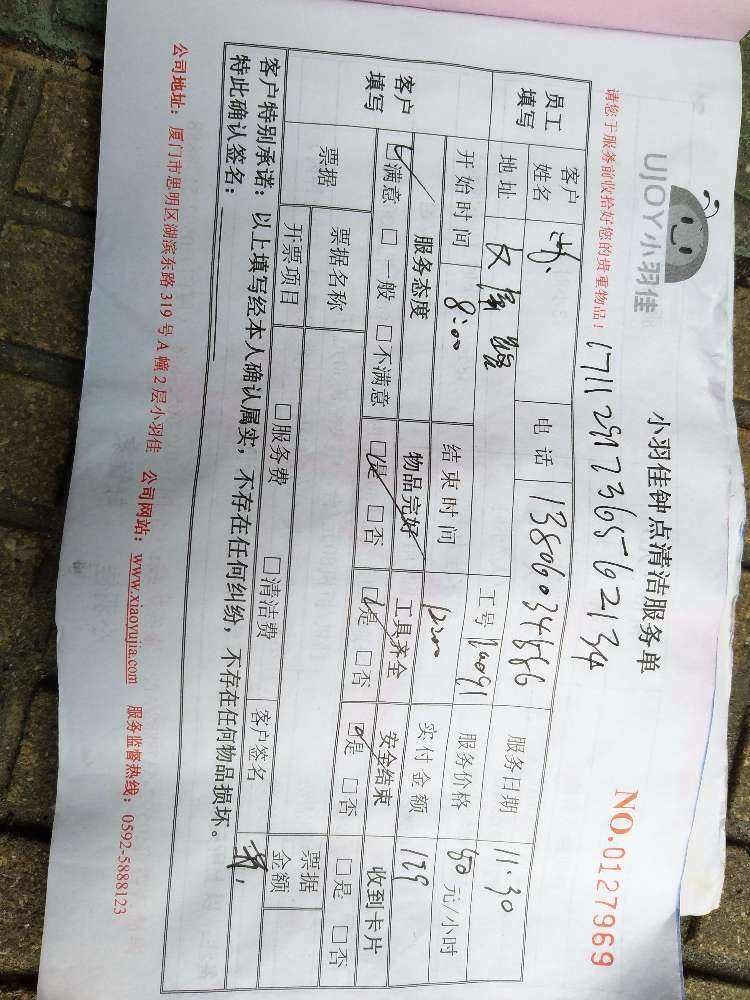 UJOY小羽佳
小羽佳钟点清洁服务单
NO.0127969
请您于服务前收拾好您的贵重物品!
员工填写 客户姓名 电话 服务日期 11.30
地址 工号 服务价格 元/小时
客户填写 开始时间 8:00 结束时间 12:00 实付金额
服务态度 物品完好 工具齐全 安全结束 收到卡片
☑满意 □一般 □不满意 ☑是 □否 ☑是 □否 ☑是 □否 □是 □否
票据 票据名称 □服务费 □清洁费 票据金额
开票项目 客户签名
客户特别承诺:以上填写经本人确认属实,不存在任何纠纷,不存在任何物品损坏。
特此确认签名:
公司地址:厦门市思明区湖滨东路 319 号 A 幢 2 层小羽佳 公司网站:www.xiaoyujia.com 服务监督热线:0592-5888123